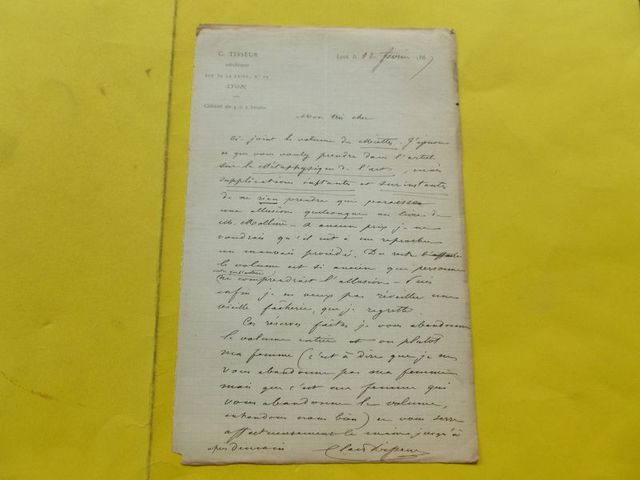 C. TISSEUR
ARCHITECTE
RUE DE LA REINE, Nº
LYON
Cabinet de 4 à 6 heures
Lyon le 12 février 18
Mon très cher
Ci joint le volume de Miette. J'ignore
ce que vous voulez prendre dans l'article
sur la Métaphysique de l'art, mais
supplications instantes et surinstantes
de ne rien prendre que paraisse
une allusion quelconque au livre de
M. - À aucun prix je ne
voudrais qu'il eût à me reprocher
un mauvais procédé. Du reste
le volume est si ancien que personne
ne comprendrait l'allusion - Puis
enfin je ne veux pas réveiller une
vieille fâcherie, que je regrette
Ces réserves faites je vous abandonne
le volume entier et ou plutôt
ma femme (c'est à dire que je ne
vous abandonne pas ma femme
mais que c'est ma femme qui
vous abandonne le volume,
entendons nous bien) et vous serre
affectueusement la main jusqu'à
après demain
Clair Tisseur